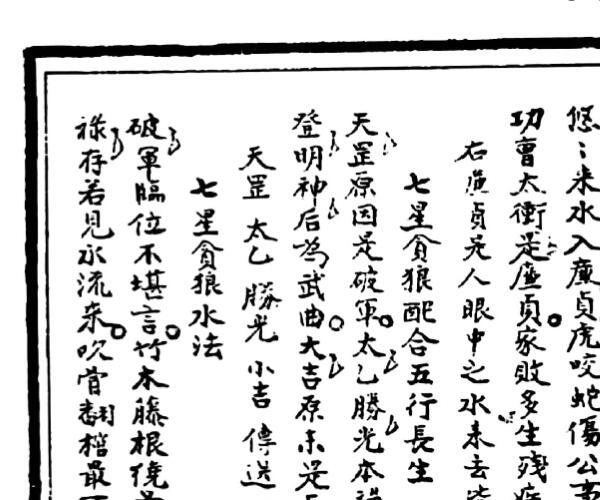 悠〻来水入廉貞虎咬蛇傷公事
功曹太衝是廉貞家敗多生殘疾
右廉貞是人眼中之水来去皆
七星貪狼配合五行長生
天罡原因是破軍太乙勝光本祿
登明神后為武曲大吉原来是
天罡 太乙 勝光 小吉 傳送
七星貪狼水法
破軍臨位不堪言竹木藤根繞
祿存若見水流来吹當翻棺最